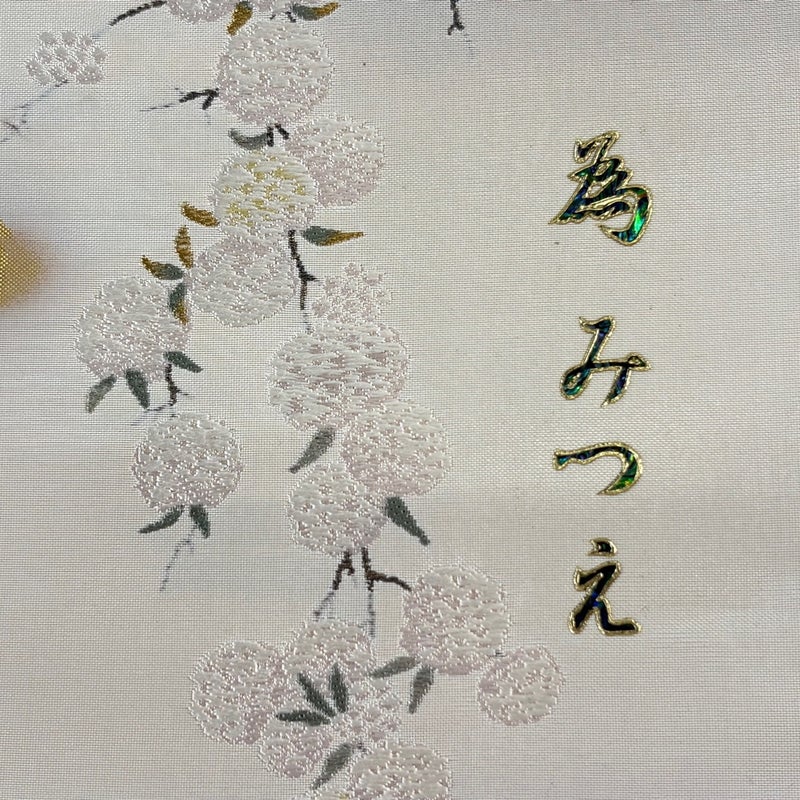 為 みつえ